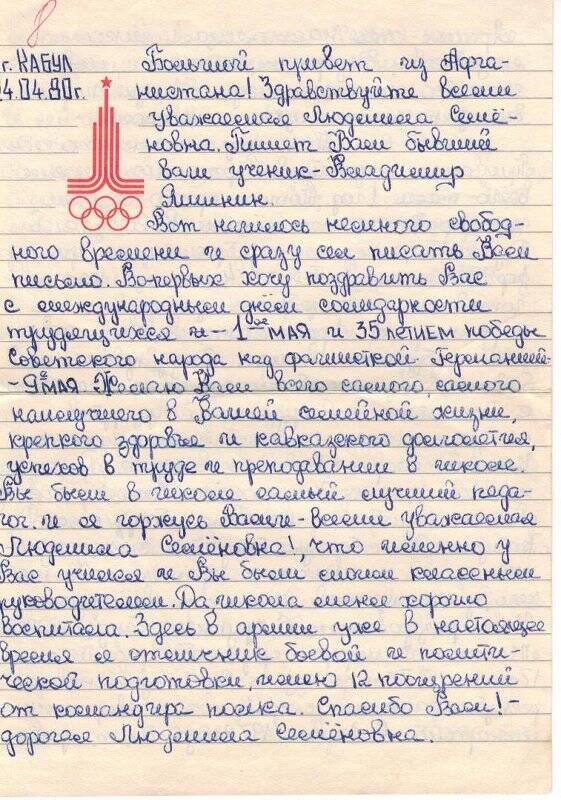 8
г. КАБУЛ
24.04.80г.
Большой привет из Афга-
нистана! Здравствуйте всеми
уважаемая Людмила Семё-
новна. Пишет Вам бывший
ваш ученик - Владимир
Яшинин.
Вот нашлось немного свобод-
ного времени и сразу сел писать Вам
письмо. Во-первых хочу поздравить Вас
с международным днём солидарности
трудящихся и - 1ое МАЯ и 35 ЛЕТИЕМ победы
Советского народа над фашисткой Германией-
- 9е МАЯ. Желаю Вам всего самого, самого
наилучшего в Вашей семейной жизни,
крепкого здоровья и кавказского долголетия,
успехов в труде и преподавании в школе.
Вы были в школе самый лучший педа-
гог. и я горжусь Вами - всеми уважаемая
Людмила Семёновна!, что именно у
Вас учился и Вы были моим классным
руководителем. Да, школа меня хорошо
воспитала. Здесь в армии уже в настоящее
время я отличник боевой и полити-
ческой подготовки, имею 12 поощрений
от командира полка. Спасибо Вам! -
дорогая Людмила Семёновна.